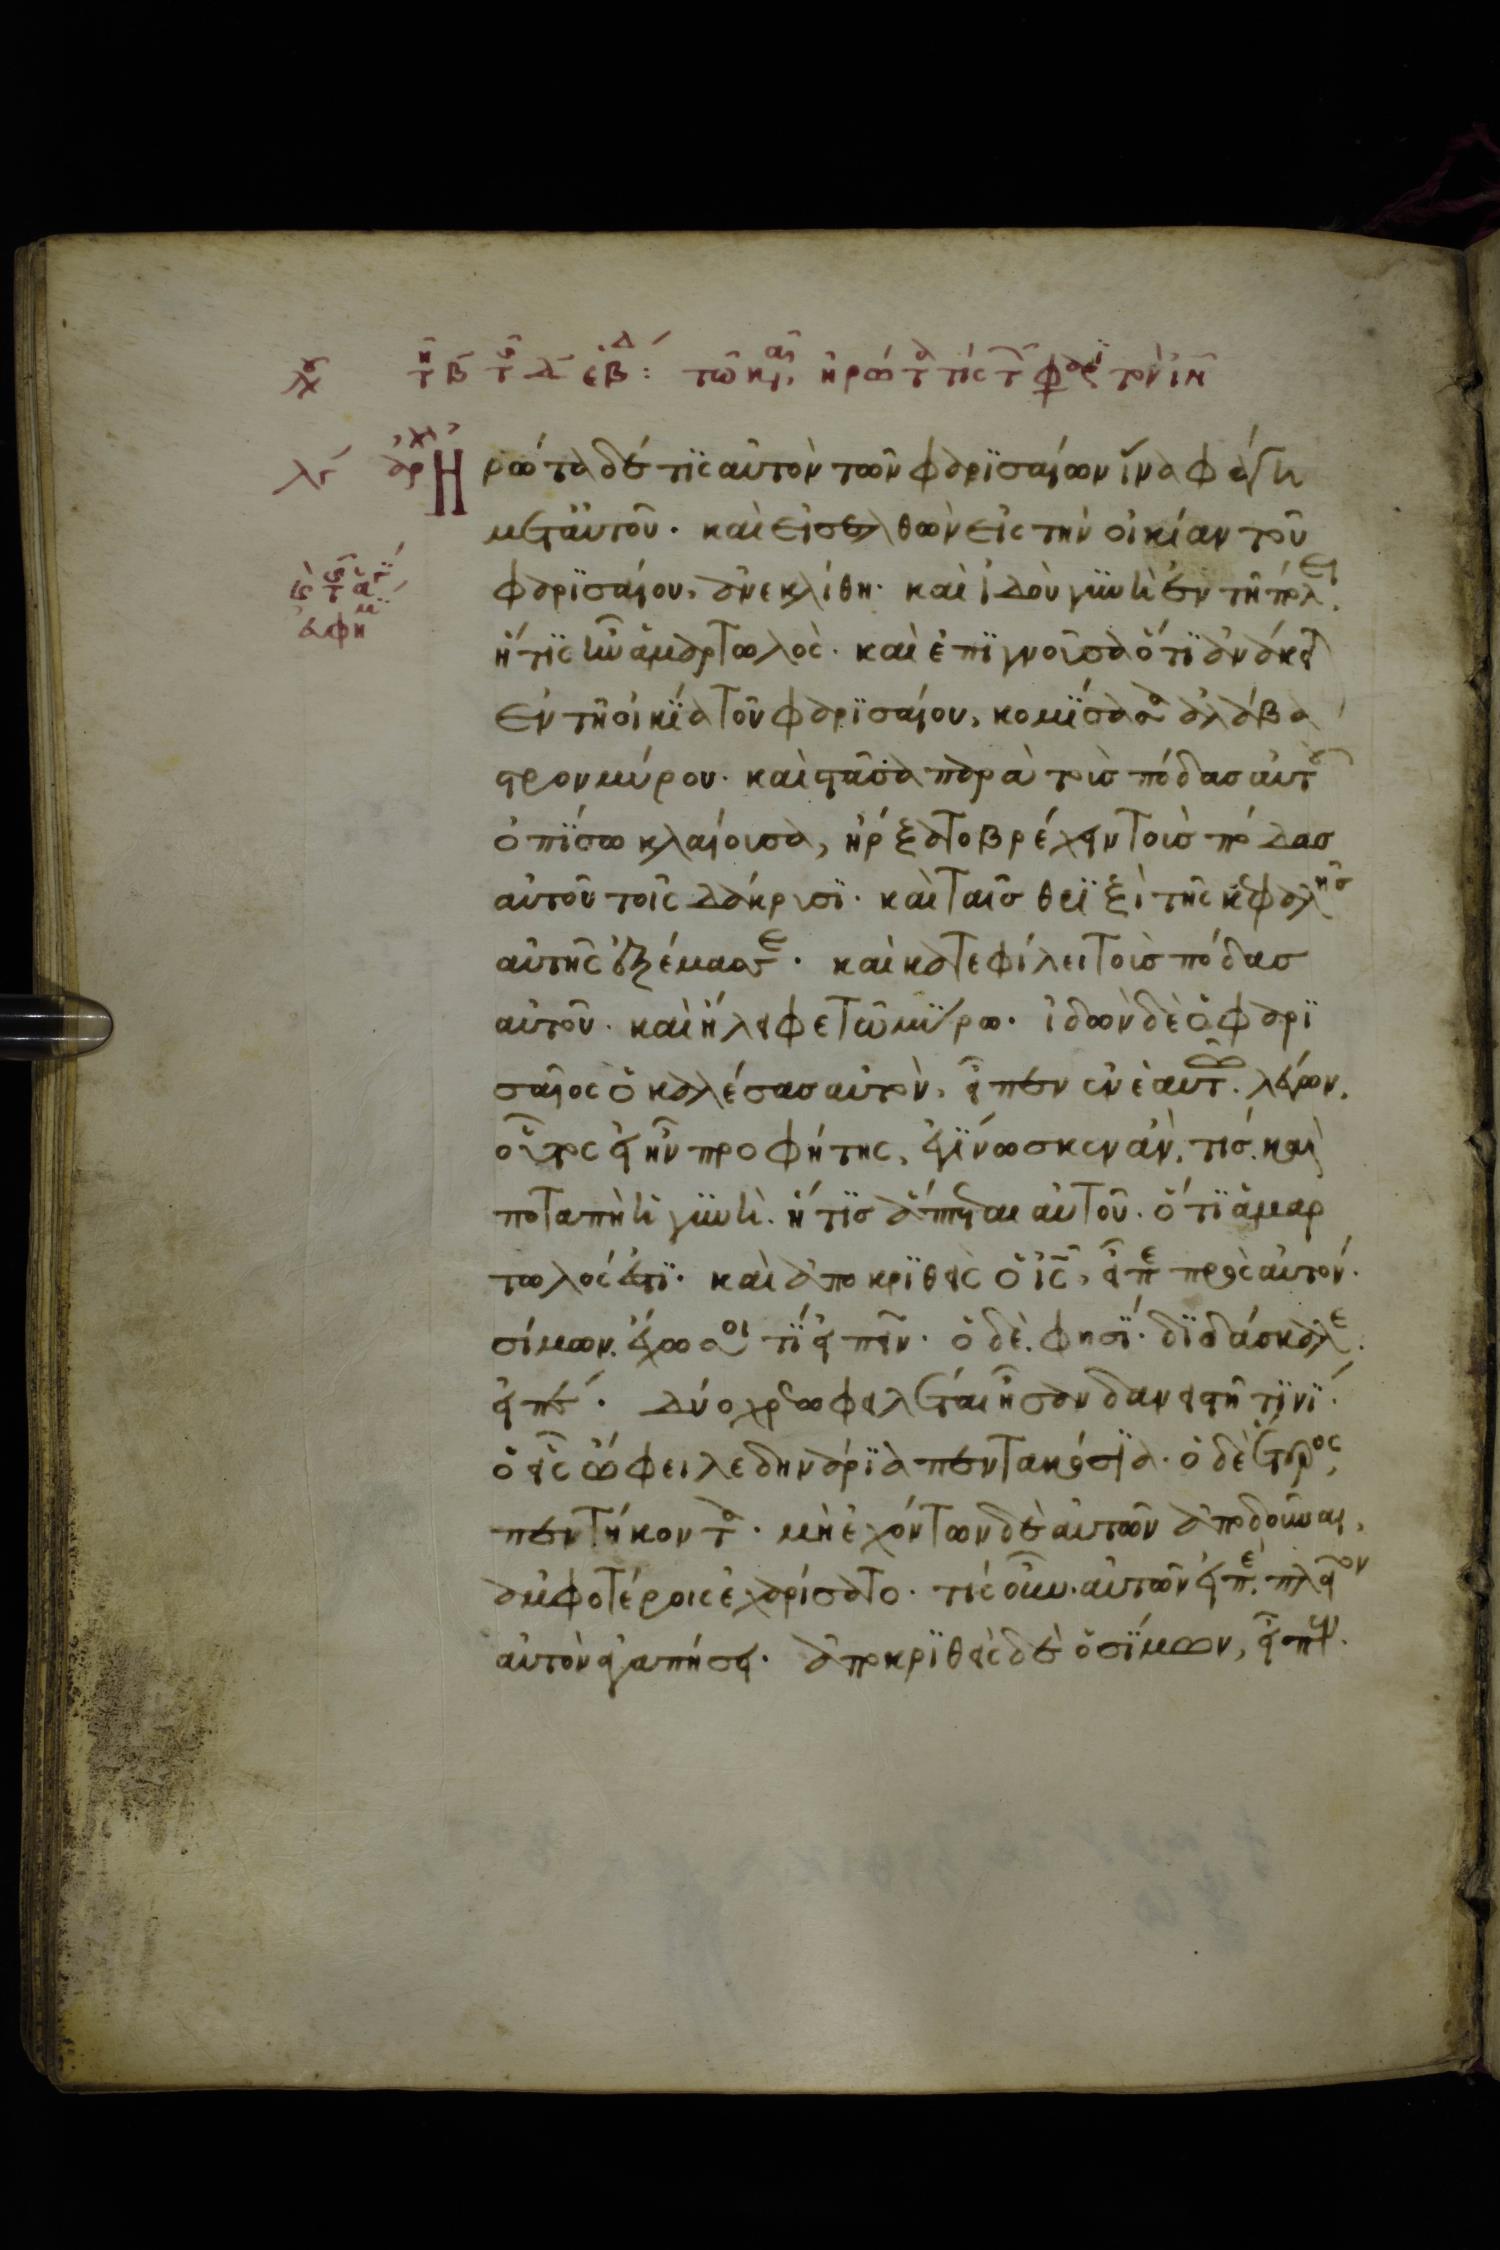 τῆ β τῆς δ ἑβδ: τῶ καιρ, ἠρώτα τίς τῶν φαρι τὸν ἰν
ἀρχ Ἠρώτα δέ τϊς αὐτὸν τῶν φαρϊσαίων ἵνα φάγη
μετ αὐτοῦ. καὶ εἰσελθὼν εἰς τὴν οἰκίαν τοῦ
φαρϊσαίου, ἀνεκλίθη. καὶ ἰδοὺ γϋνὴ ἐν τῆ πόλει,
ἥτϊς ἦν ἁμαρτωλός. καὶ ἐπϊγνοῦσα ὅτϊ ἀνάκειται
ἐν τῆ οἰκϊα τοῦ φαρϊσαίου, κομϊσασα ἀλάβα
στρον μύρου. καὶ στᾶσα παρὰ τοὺς πόδας αὐτοῦ
ὀπϊσω κλαίουσα, ἤρξατο βρέχειν τοὺς πόδας
αὐτοῦ τοῖς δάκρυσϊ. καὶ ταῖς θρϊξὶ τῆς κεφαλῆς
αὐτῆς ἐξέμασσε. καὶ κατεφίλει τοὺς πόδας
αὐτοῦ. καὶ ἤλειφε τῶ μϋρω. ἰδὼν δὲ ὁ φαρϊ
σαῖος ὁ καλέσας αὐτὸν, εἶπεν ἐν ἑαυτῶ. λέγων,
οὗτος εἰ ἦν προφήτης, ἐγϊνωσκεν ἀν, τίς. καὶ
ποταπὴ ἡ γϋνὴ. ἥτϊς ἅπτεται αὐτοῦ. ὅτϊ ἁμαρ
τωλός ἐστϊ. καὶ ἀποκρϊθεὶς ὁ ἰς, εἶπε πρὸς αὐτόν.
σίμων. ἔχω σοι τϊ εἰπεῖν. ὁ δὲ. φησϊ. δϊδάσκαλε.
εἰπέ. δύο χρεωφειλέται ἦσαν δανειστῆ τϊνϊ.
ὁ εἷς ὤφειλε δηνάρϊα πεντακόσϊα. ὁ δὲ ἕτερος,
πεντήκοντα. μὴ ἐχόντων δὲ αὐτῶν ἀποδοῦναι,
ἀμφοτέροις ἐχαρίσατο. τίς οὖν. αὐτῶν εἰπέ. πλεῖον
αὐτὸν ἀγαπήσει. ἀποκρϊθεὶς δὲ ὁ σϊμων, εἶπεν.